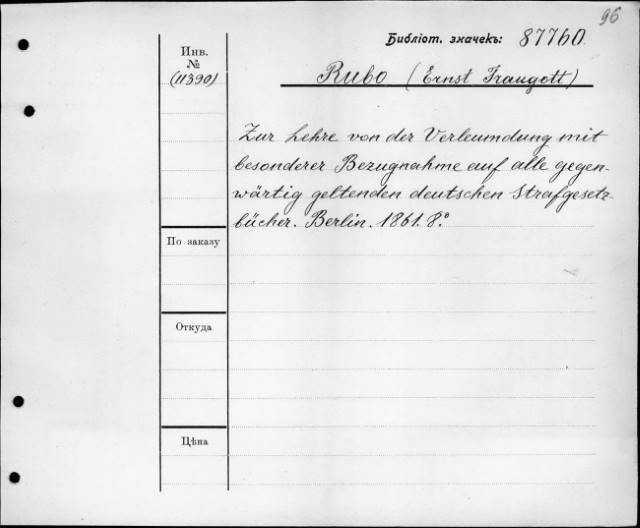 96
Библіот. значекъ: 87760.
Инв.
№
(11390)
Rubo (Ernst Traugott)
Zur Lehre von der Verleumdung mit
besonderer Bezugnahme auf alle gegen-
wärtig geltenden deutschen Strafgesetz-
bücher. Berlin. 1861. 8.°
По заказу
Откуда
Цѣна